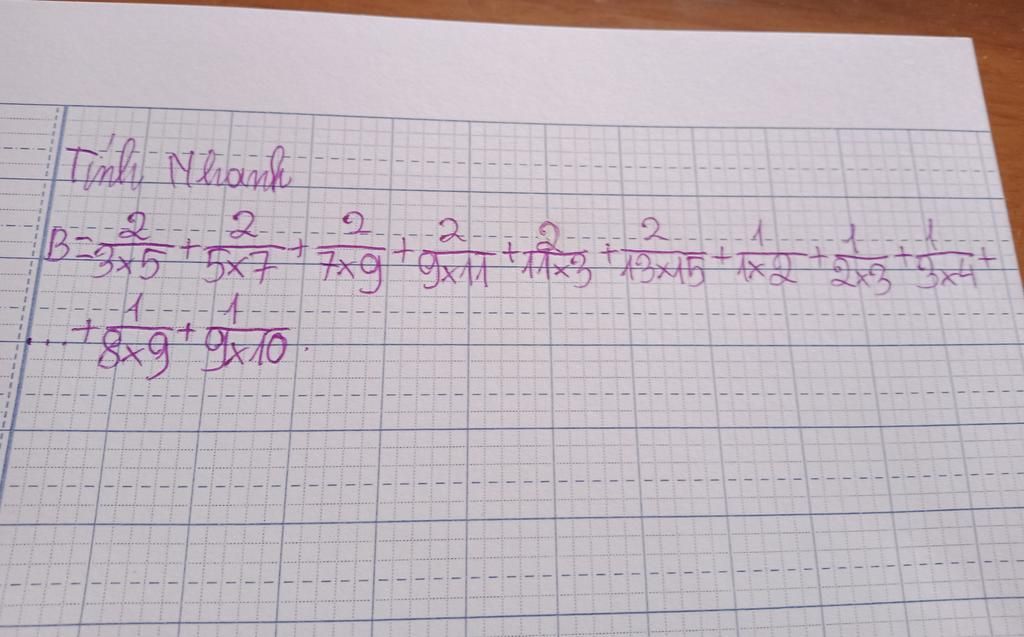 Tính Nhanh
B = 2/3×5 + 2/5×7 + 2/7×9 + 2/9×11 + 2/11×3 + 2/13×15 + 1/1×2 + 1/2×3 + 1/3×4 +
... + 1/8×9 + 1/9×10.